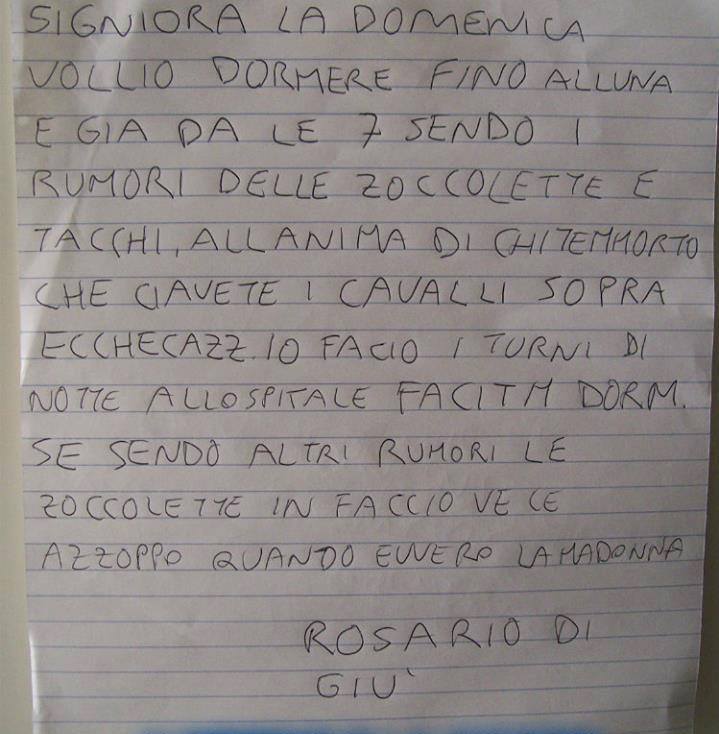 SIGNIORA LA DOMENICA
VOLLIO DORMERE FINO ALLUNA
E GIA DA LE 7 SENDO I
RUMORI DELLE ZOCCOLETTE E
TACCHI, ALLANIMA DI CHITEMMORTO
CHE CIAVETE I CAVALLI SOPRA
ECCHECAZZ. IO FACIO I TURNI DI
NOTTE ALLOSPITALE FACITM DORM.
SE SENDO ALTRI RUMORI LE
ZOCCOLETTE IN FACCIO VE CE
AZZOPPO QUANDO EVVERO LAMADONNA
ROSARIO DI
GIU'